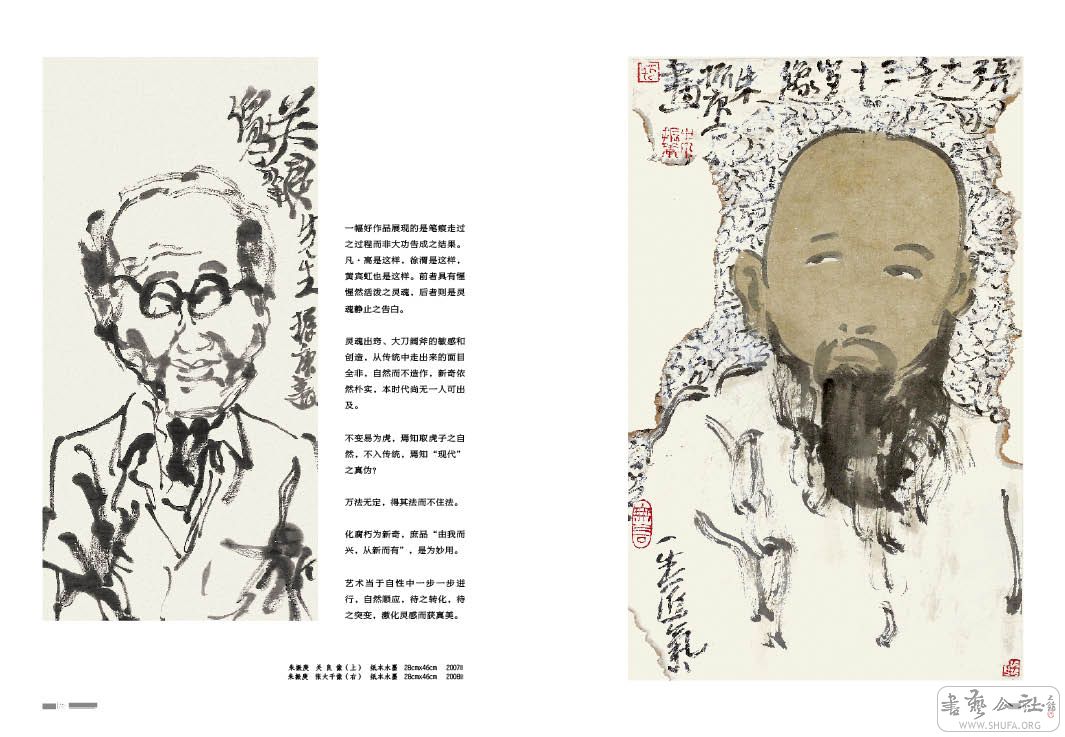 关良
像
先生
振庚
一幅好作品展现的是笔痕走过
之过程而非大功告成之结果。
凡·高是这样，徐渭是这样，
黄宾虹也是这样。前者具有惺
惺然活泼之灵魂，后者则是灵
魂静止之告白。
灵魂出窍、大刀阔斧的敏感和
创造，从传统中走出来的面目
全非，自然而不造作，新奇依
然朴实，本时代尚无一人可出
及。
不变易为虎，焉知取虎子之自
然，不入传统，焉知“现代”
之真伪？
万法无定，得其法而不住法。
化腐朽为新奇，庶品“由我而
兴，从新而有”，是为妙用。
艺术当于自性中一步一步进
行，自然顺应，待之转化，待
之突变，激化灵感而获真美。
朱振庚 关良像（上） 纸本水墨 28cmx46cm 2007年
朱振庚 张大千像（右） 纸本水墨 28cmx46cm 2008年
张大千三十岁像 朱振庚画
一生正气
書藝公社
WWW.SHUFA.ORG